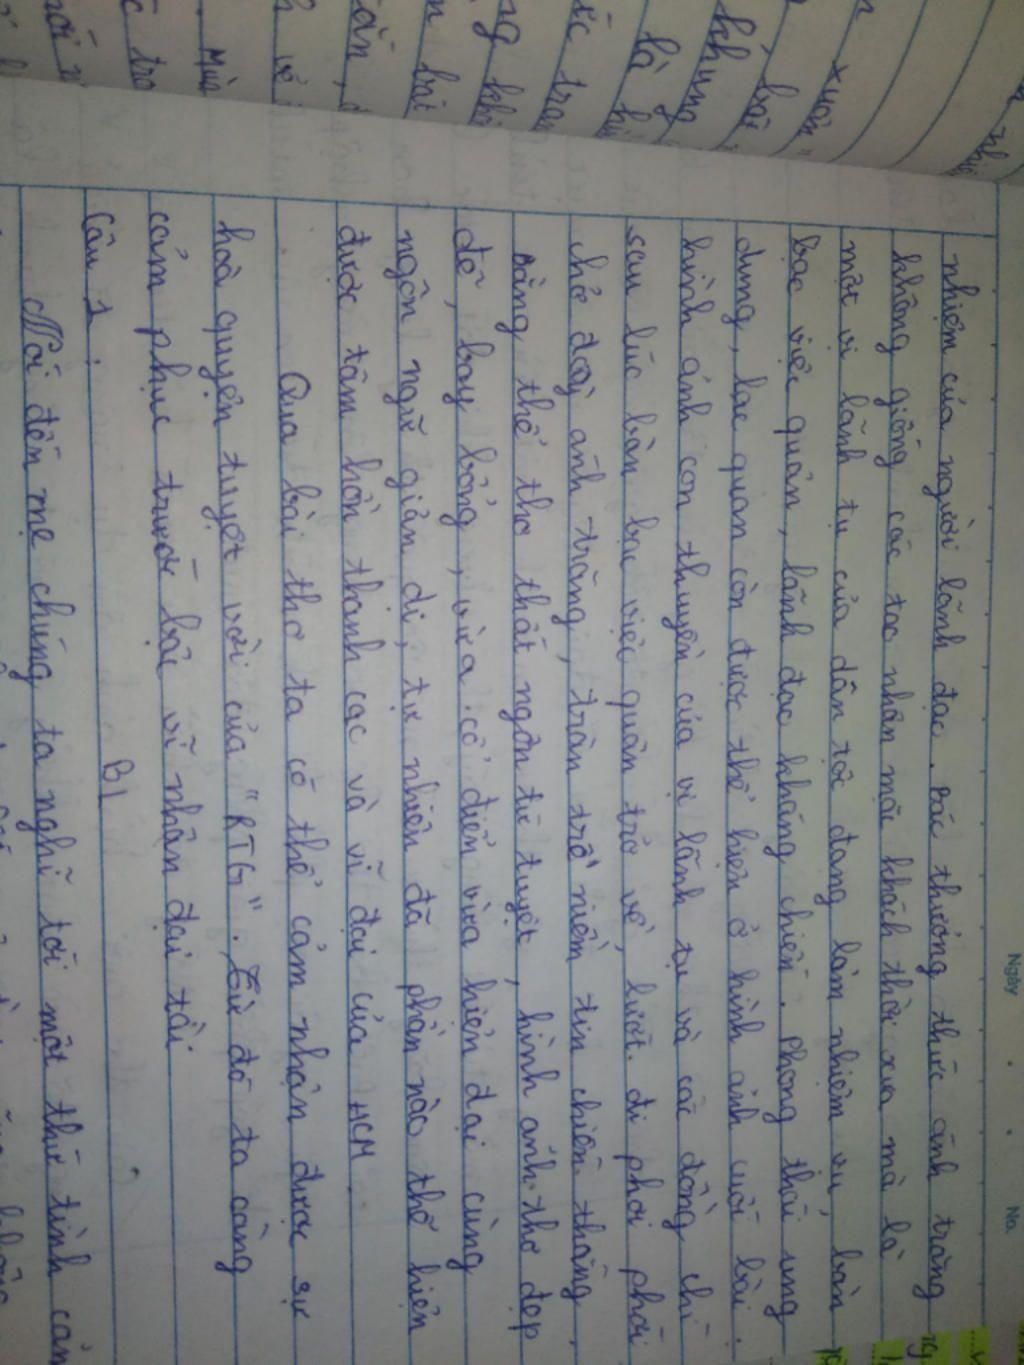 Ngày
No.
nhiệm của người lãnh đạo. Bác thưởng thức ánh trăng
không giống các tao nhân mặc khách thời xưa mà là
một vị lãnh tụ của dân tộc đang làm nhiệm vụ, bàn
bạc việc quân, lãnh đạo kháng chiến. Phong thái ung
dung, lạc quan còn được thể hiện ở hình ảnh cuối bài.
hình ảnh con thuyền của vị lãnh tụ và các đồng chí
sau lúc bàn bạc việc quân trở về, lướt đi phơi phới
chở đầy ánh trăng, tràn trề niềm tin chiến thắng,
Bằng thể thơ thất ngôn tứ tuyệt, hình ảnh thơ đẹp
đẽ, bay bổng, vừa cổ điển vừa hiện đại cùng
ngôn ngữ giản dị, tự nhiên đã phần nào thể hiện
được tâm hồn thanh cao và vĩ đại của HCM.
Qua bài thơ ta có thể cảm nhận được sự
hoà quyện tuyệt vời của "RTG". Từ đó ta càng
cảm phục trước bậc vĩ nhân đại tài.
B1
Câu 1:
Nói đến mẹ chúng ta nghĩ tới một thứ tình cảm